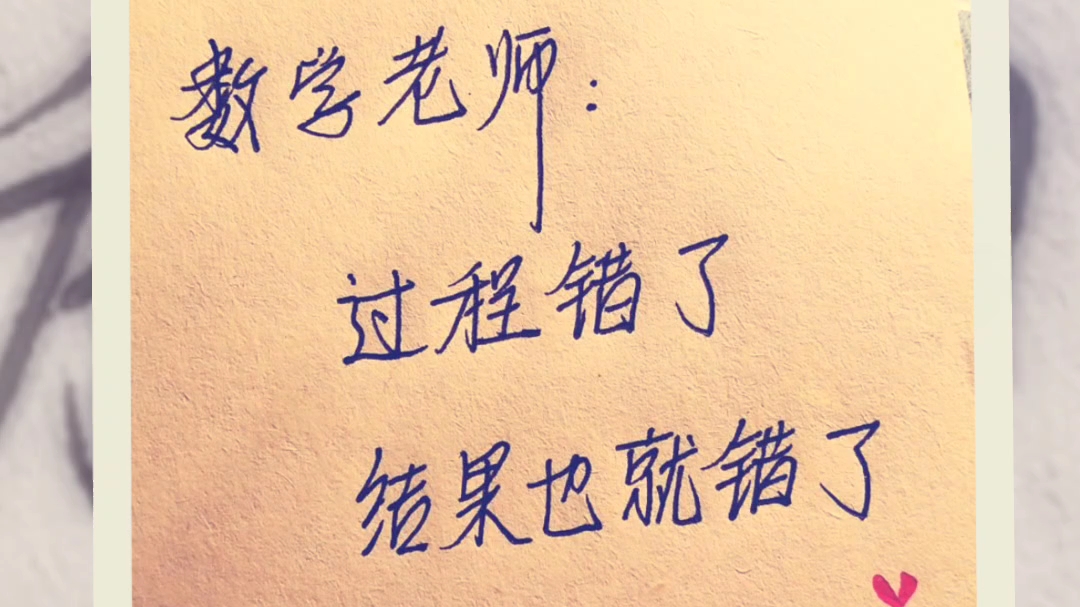 数学老师:
过程错了
结果也就错了